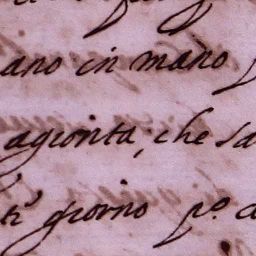 ano in mano
agionta, che sa
ti giorno po. a